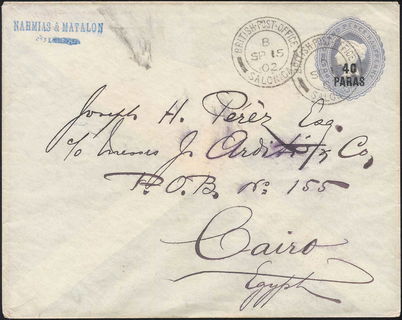 NAHMIAS & MATALON
BRITISH·POST·OFFICE
B
SP 15
02
SALONICA
BRITISH·POST·OFFICE
SALONICA
40
PARAS
Joseph H. Pérez Esq.
c/o messrs J. Arditi & Co,
P.O.B. No 155
Cairo
Egypt